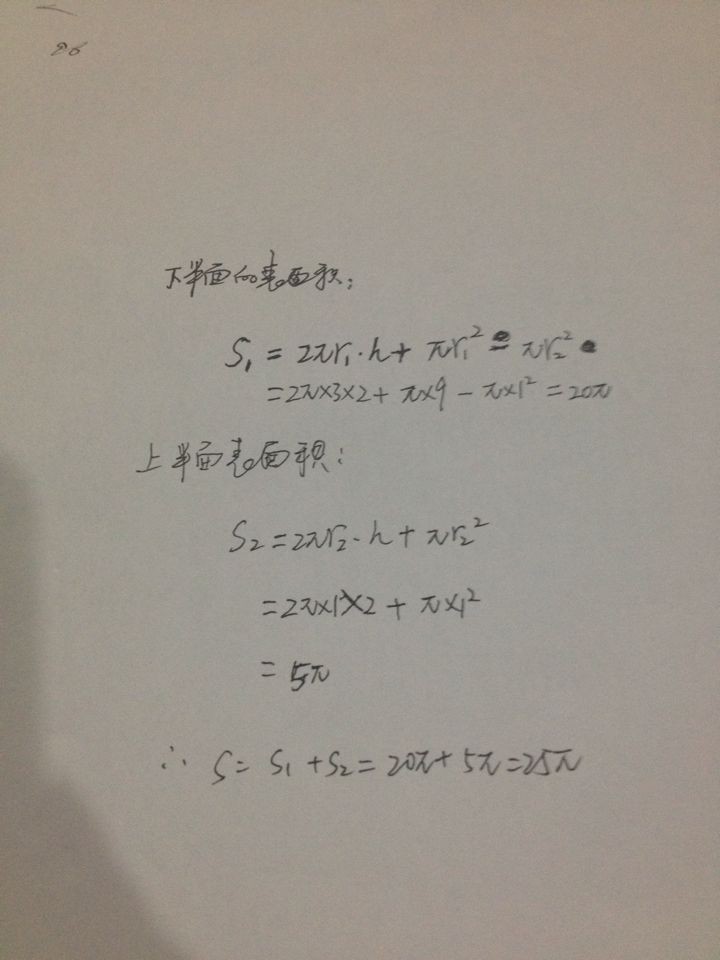 96
下半面的表面积:
S₁ = 2πr₁·h + πr₁² - πr₂²
= 2π×3×2 + π×9 - π×1² = 20π
上半面表面积:
S₂ = 2πr₂·h + πr₂²
= 2π×1×2 + π×1²
= 5π
∴ S = S₁ + S₂ = 20π + 5π = 25π